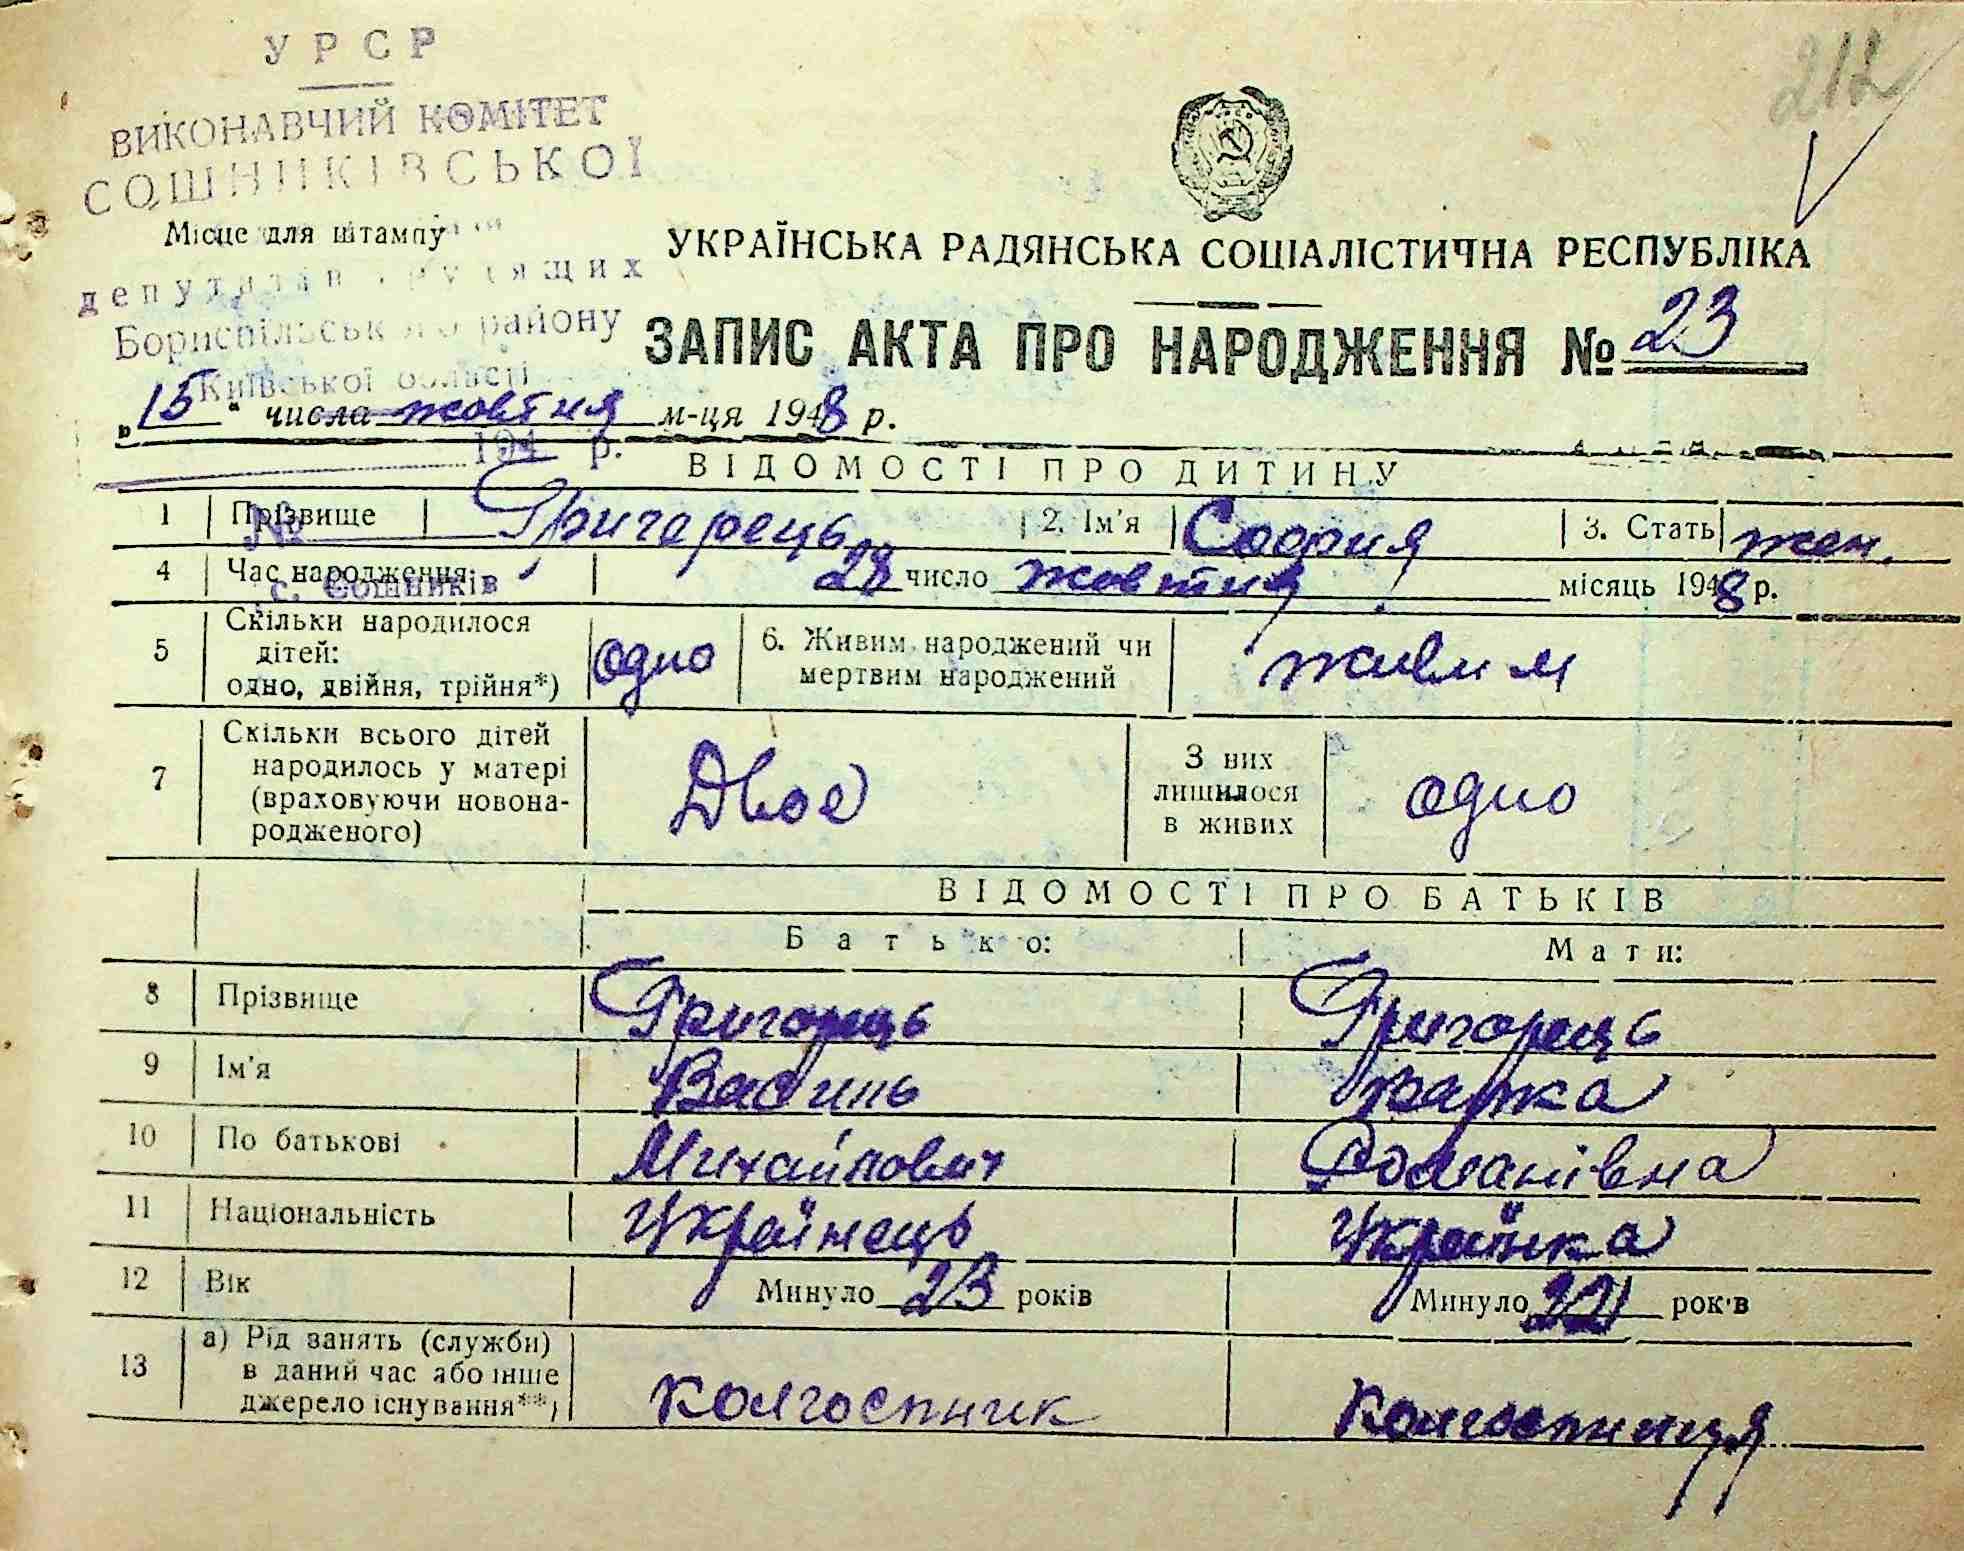 212
УРСР
ВИКОНАВЧИЙ КОМІТЕТ
СОШНИКІВСЬКОЇ
Місце для штампу
депутатів трудящих
Бориспільського району
Київської області
194 р.
№
с. Сошників
УКРАЇНСЬКА РАДЯНСЬКА СОЦІАЛІСТИЧНА РЕСПУБЛІКА
ЗАПИС АКТА ПРО НАРОДЖЕННЯ № 23
„15“ числа жовтня м-ця 1948 р.
ВІДОМОСТІ ПРО ДИТИНУ
1 Прізвище Григорець 2. Ім'я София 3. Стать жен.
4 Час народження 28 число жовтня місяць 1948 р.
5 Скільки народилося дітей: одно, двійня, трійня*) одно 6. Живим народжений чи мертвим народжений живим
7 Скільки всього дітей народилось у матері (враховуючи новонародженого) Двое З них лишилося в живих одно
ВІДОМОСТІ ПРО БАТЬКІВ
Батько: Мати:
8 Прізвище Григорець Григорець
9 Ім'я Василь
10 По батькові Михайлович Романівна
11 Національність Українець Українка
12 Вік Минуло 23 років Минуло 22 років
13 а) Рід занять (служби) в даний час або інше джерело існування**) колгоспник колгоспниця